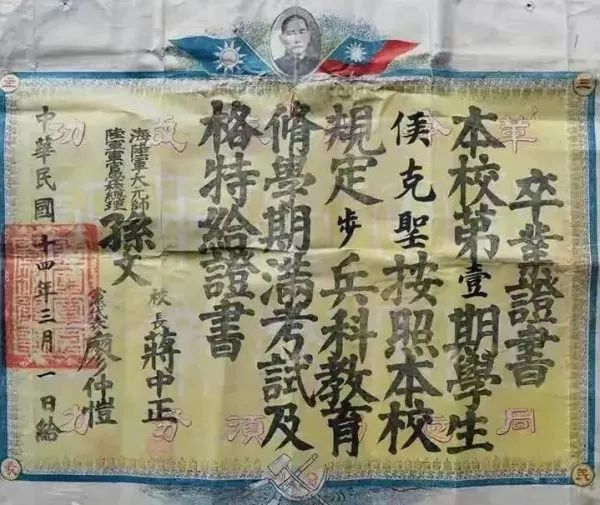 卒業證書
本校第壹期學生
侯克聖按照本校
規定步兵科教育
脩學期滿考試及
格特給證書
海陸軍大元帥
陸軍軍官學校總理
孫文
校長 蔣中正
黨代表 廖仲愷
中華民國十四年三月一日給
革 成功
同志 須
三民主義